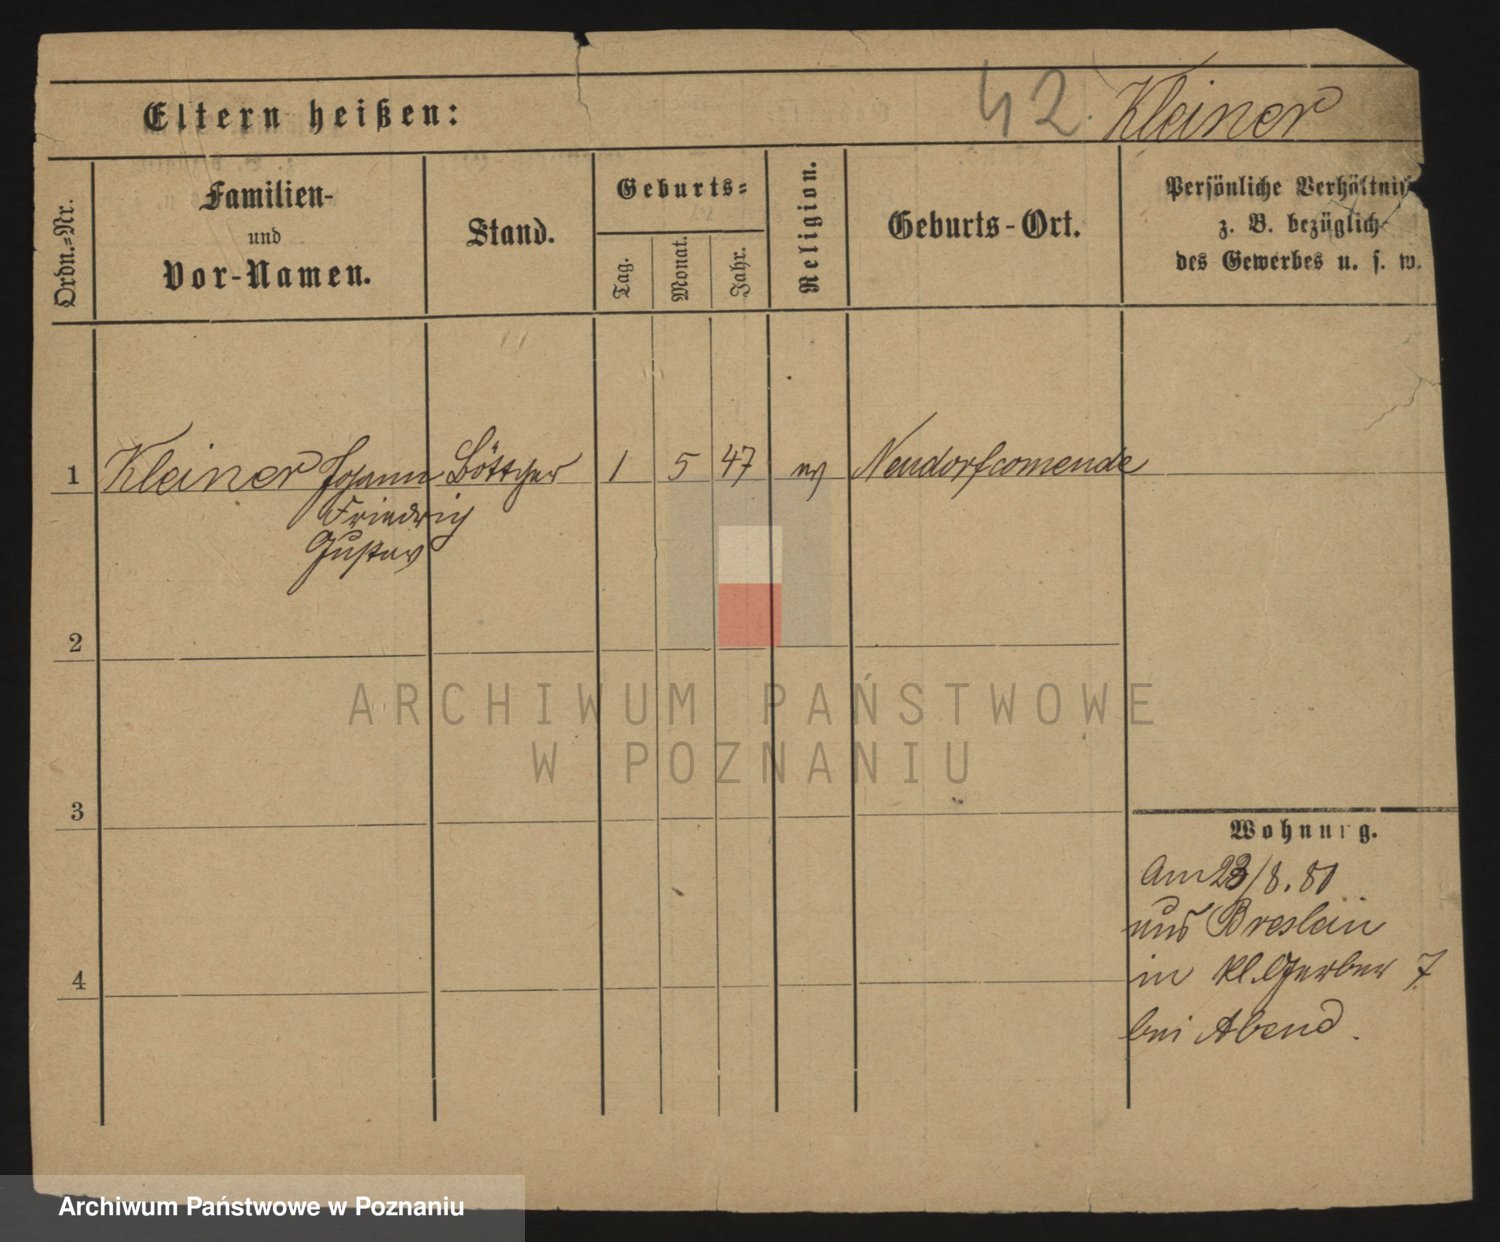 Eltern heißen:
42. Kleiner
Ordn.=Nr.
Familien-
und
Vor-Namen.
Stand.
Geburts=
Tag.
Monat.
Jahr.
Religion.
Geburts-Ort.
Persönliche Verhältnis
z. B. bezüglich
des Gewerbes u. s. w.
1 Kleiner Johann Böttcher 1 5 47 ev Neudorfcomende
Friedrich
Gustav
2
3
4
Wohnung.
Am 23/8.81
aus Breslau
in Kl. Gerber 7
bei Abend.
ARCHIWUM PAŃSTWOWE
W POZNANIU
Archiwum Państwowe w Poznaniu